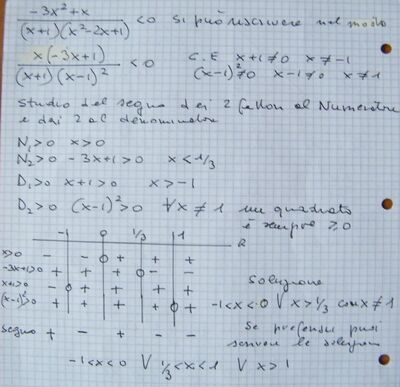 -3x² + x
(x+1)(x²-2x+1) <0 si può riscrivere nel modo
x(-3x+1)
(x+1)(x-1)² <0 C.E x+1≠0 x≠-1
(x-1)²≠0 x-1≠0 x≠1
Studio del segno dei 2 fattori al Numeratore
e dei 2 al denominatore
N₁>0 x>0
N₂>0 -3x+1>0 x<1/3
D₁>0 x+1>0 x>-1
D₂>0 (x-1)²>0 ∀x≠1 un quadrato
è sempre ≥0
-1 0 1/3 1
R
x>0 - - + + +
-3x+1>0 + + + - -
x+1>0 - + + + +
(x-1)²>0 + + + + +
segno + - + - -
Soluzione
-1<x<0 V x>1/3 con x≠1
Se preferisci puoi
scrivere le soluzioni
-1<x<0 V 1/3<x<1 V x>1